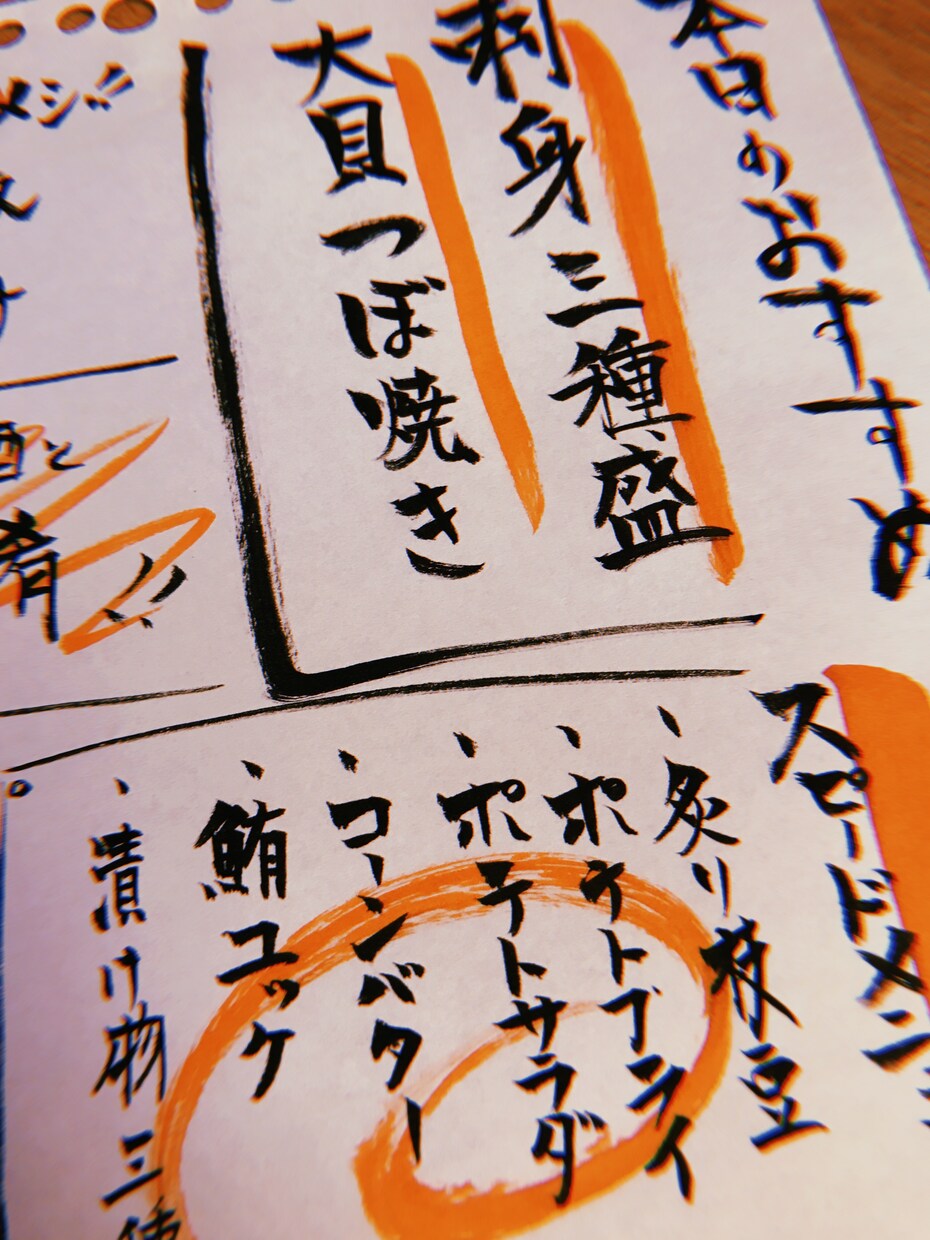 本日のおすすめ
刺身三種盛
大貝つぼ焼き
メシ!!
酒と
肴!!
スピードメニ
・炙り枝豆
・ポテトフライ
・ポテトサラダ
・コーンバター
・鮪ユッケ
・漬け物三種